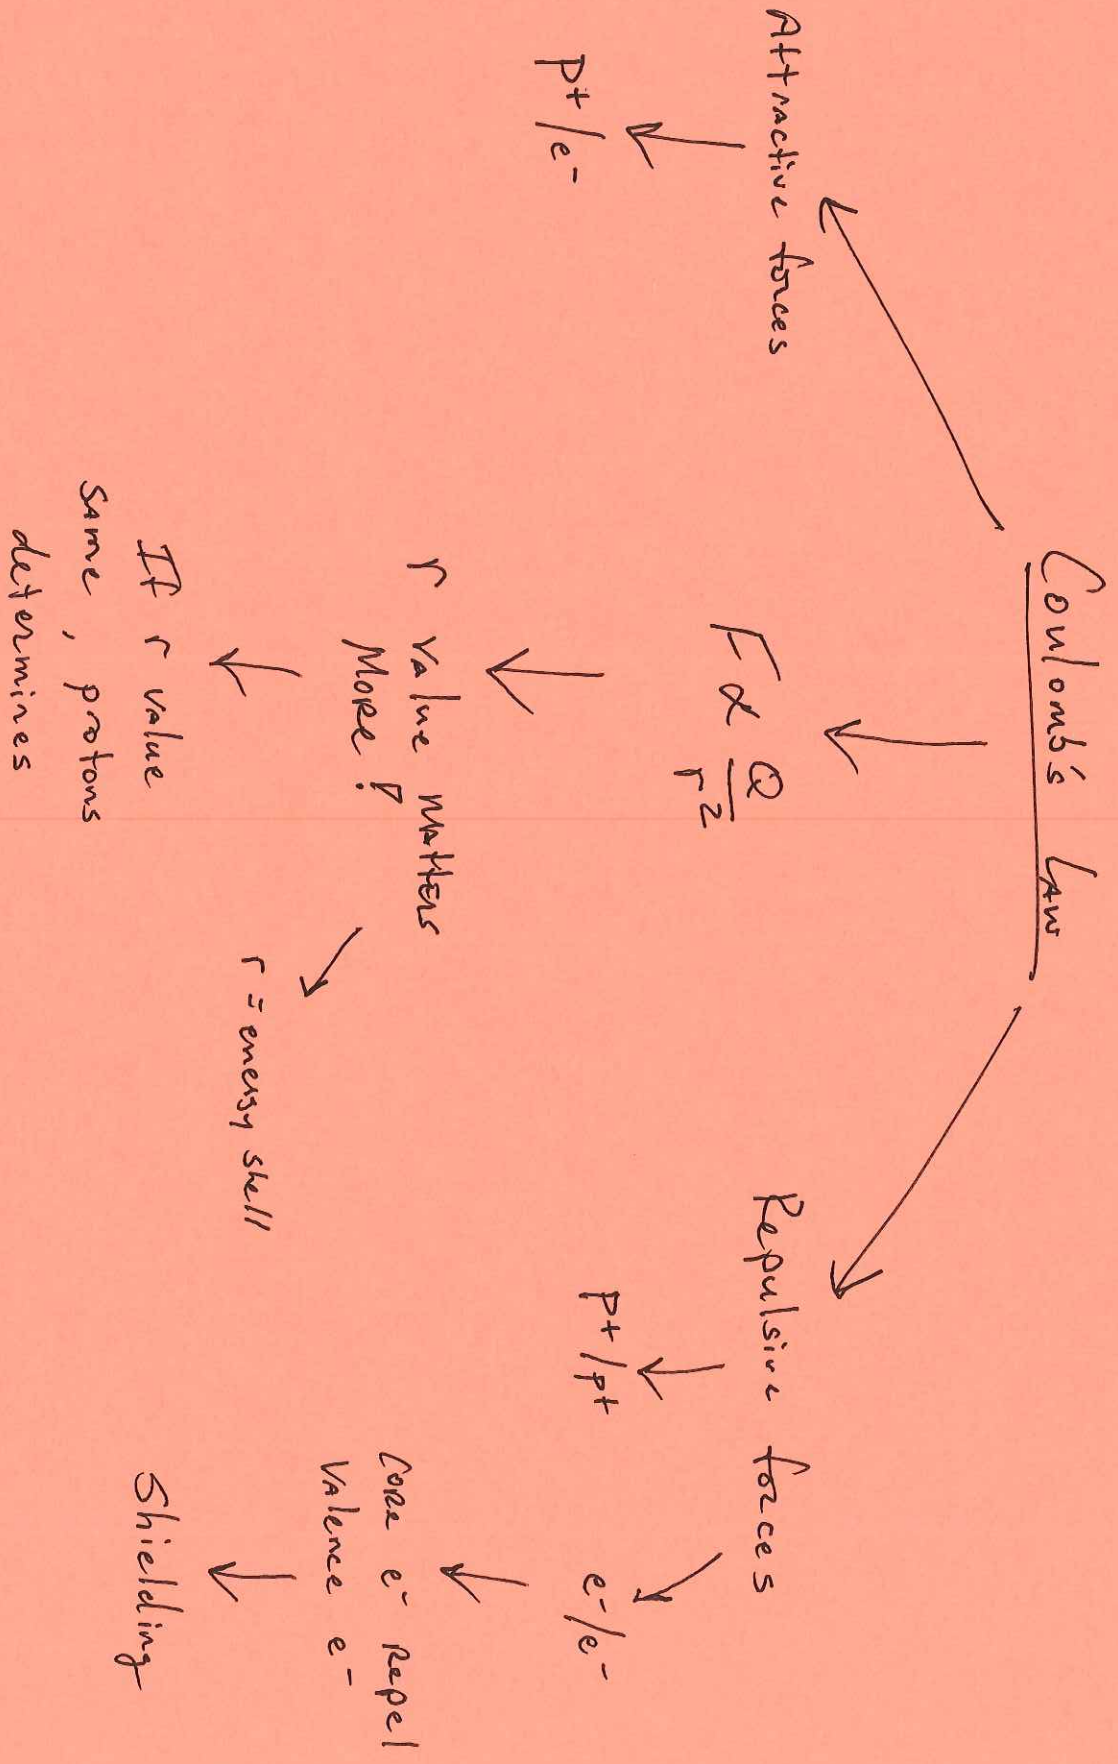 Coulomb's Law
Attractive forces
p+/e-
F ∝ Q/r²
r value matters
More!
If r value
same, protons
determines
r = energy shell
Repulsive forces
p+/p+
e-/e-
Core e- repel
valence e-
Shielding